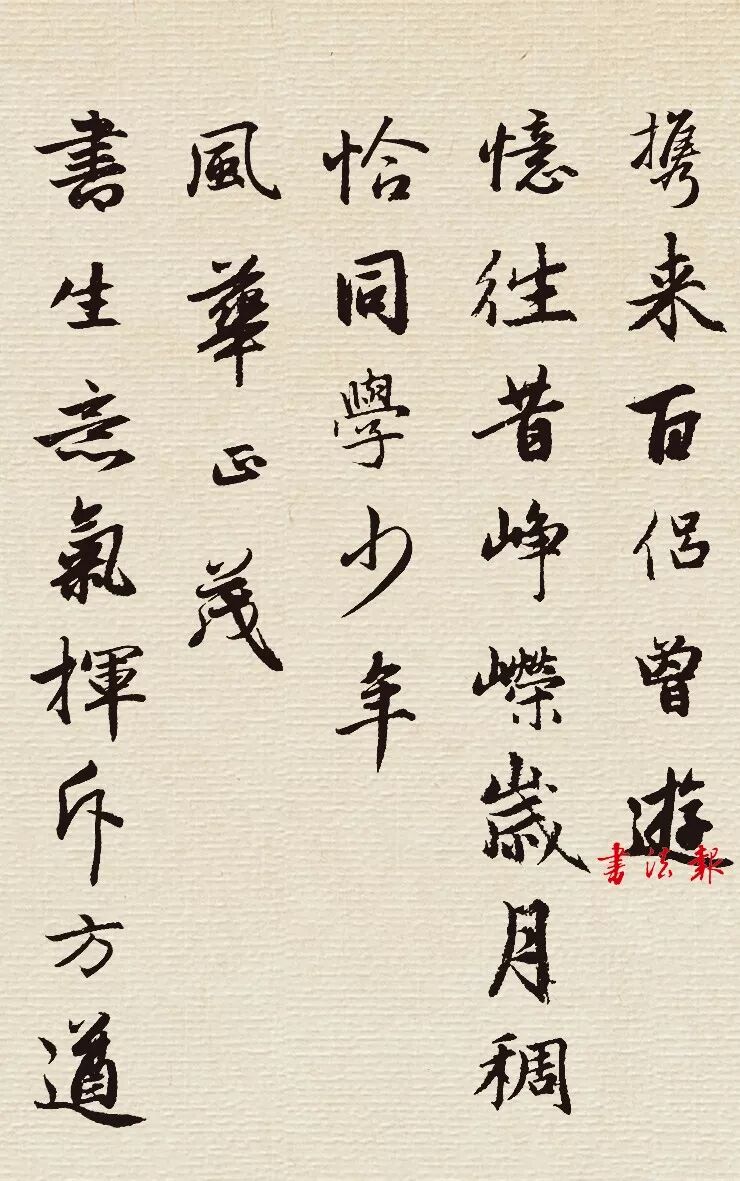 携来百侣曾遊
憶往昔峥嶸歲月稠
恰同學少年
風華正茂
書生意氣揮斥方遒
書法報